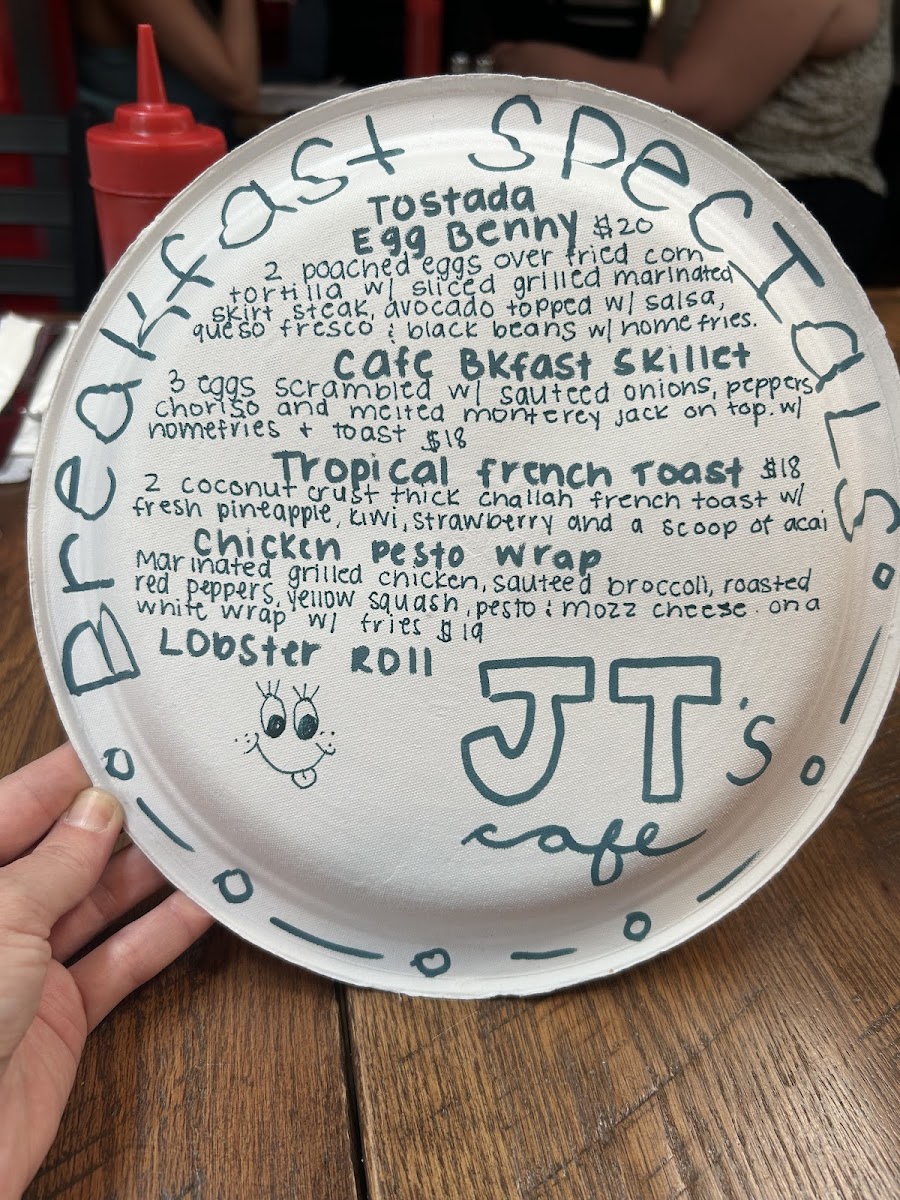 Breakfast Specials
Tostada
Egg Benny $20
2 poached eggs over fried corn
tortilla w/ sliced grilled marinated
skirt steak, avocado topped w/ salsa,
queso fresco & black beans w/ homefries.
Cafe Bkfast Skillet
3 eggs scrambled w/ sauteed onions, peppers,
choriso and melted monterey jack on top. w/
homefries + toast $18
Tropical french Toast $18
2 coconut crust thick challah french toast w/
fresh pineapple, kiwi, strawberry and a scoop of acai
Chicken pesto wrap
Marinated grilled chicken, sauteed broccoli, roasted
red peppers, yellow squash, pesto & mozz cheese. on a
white wrap w/ fries $19
Lobster Roll
JT's
cafe